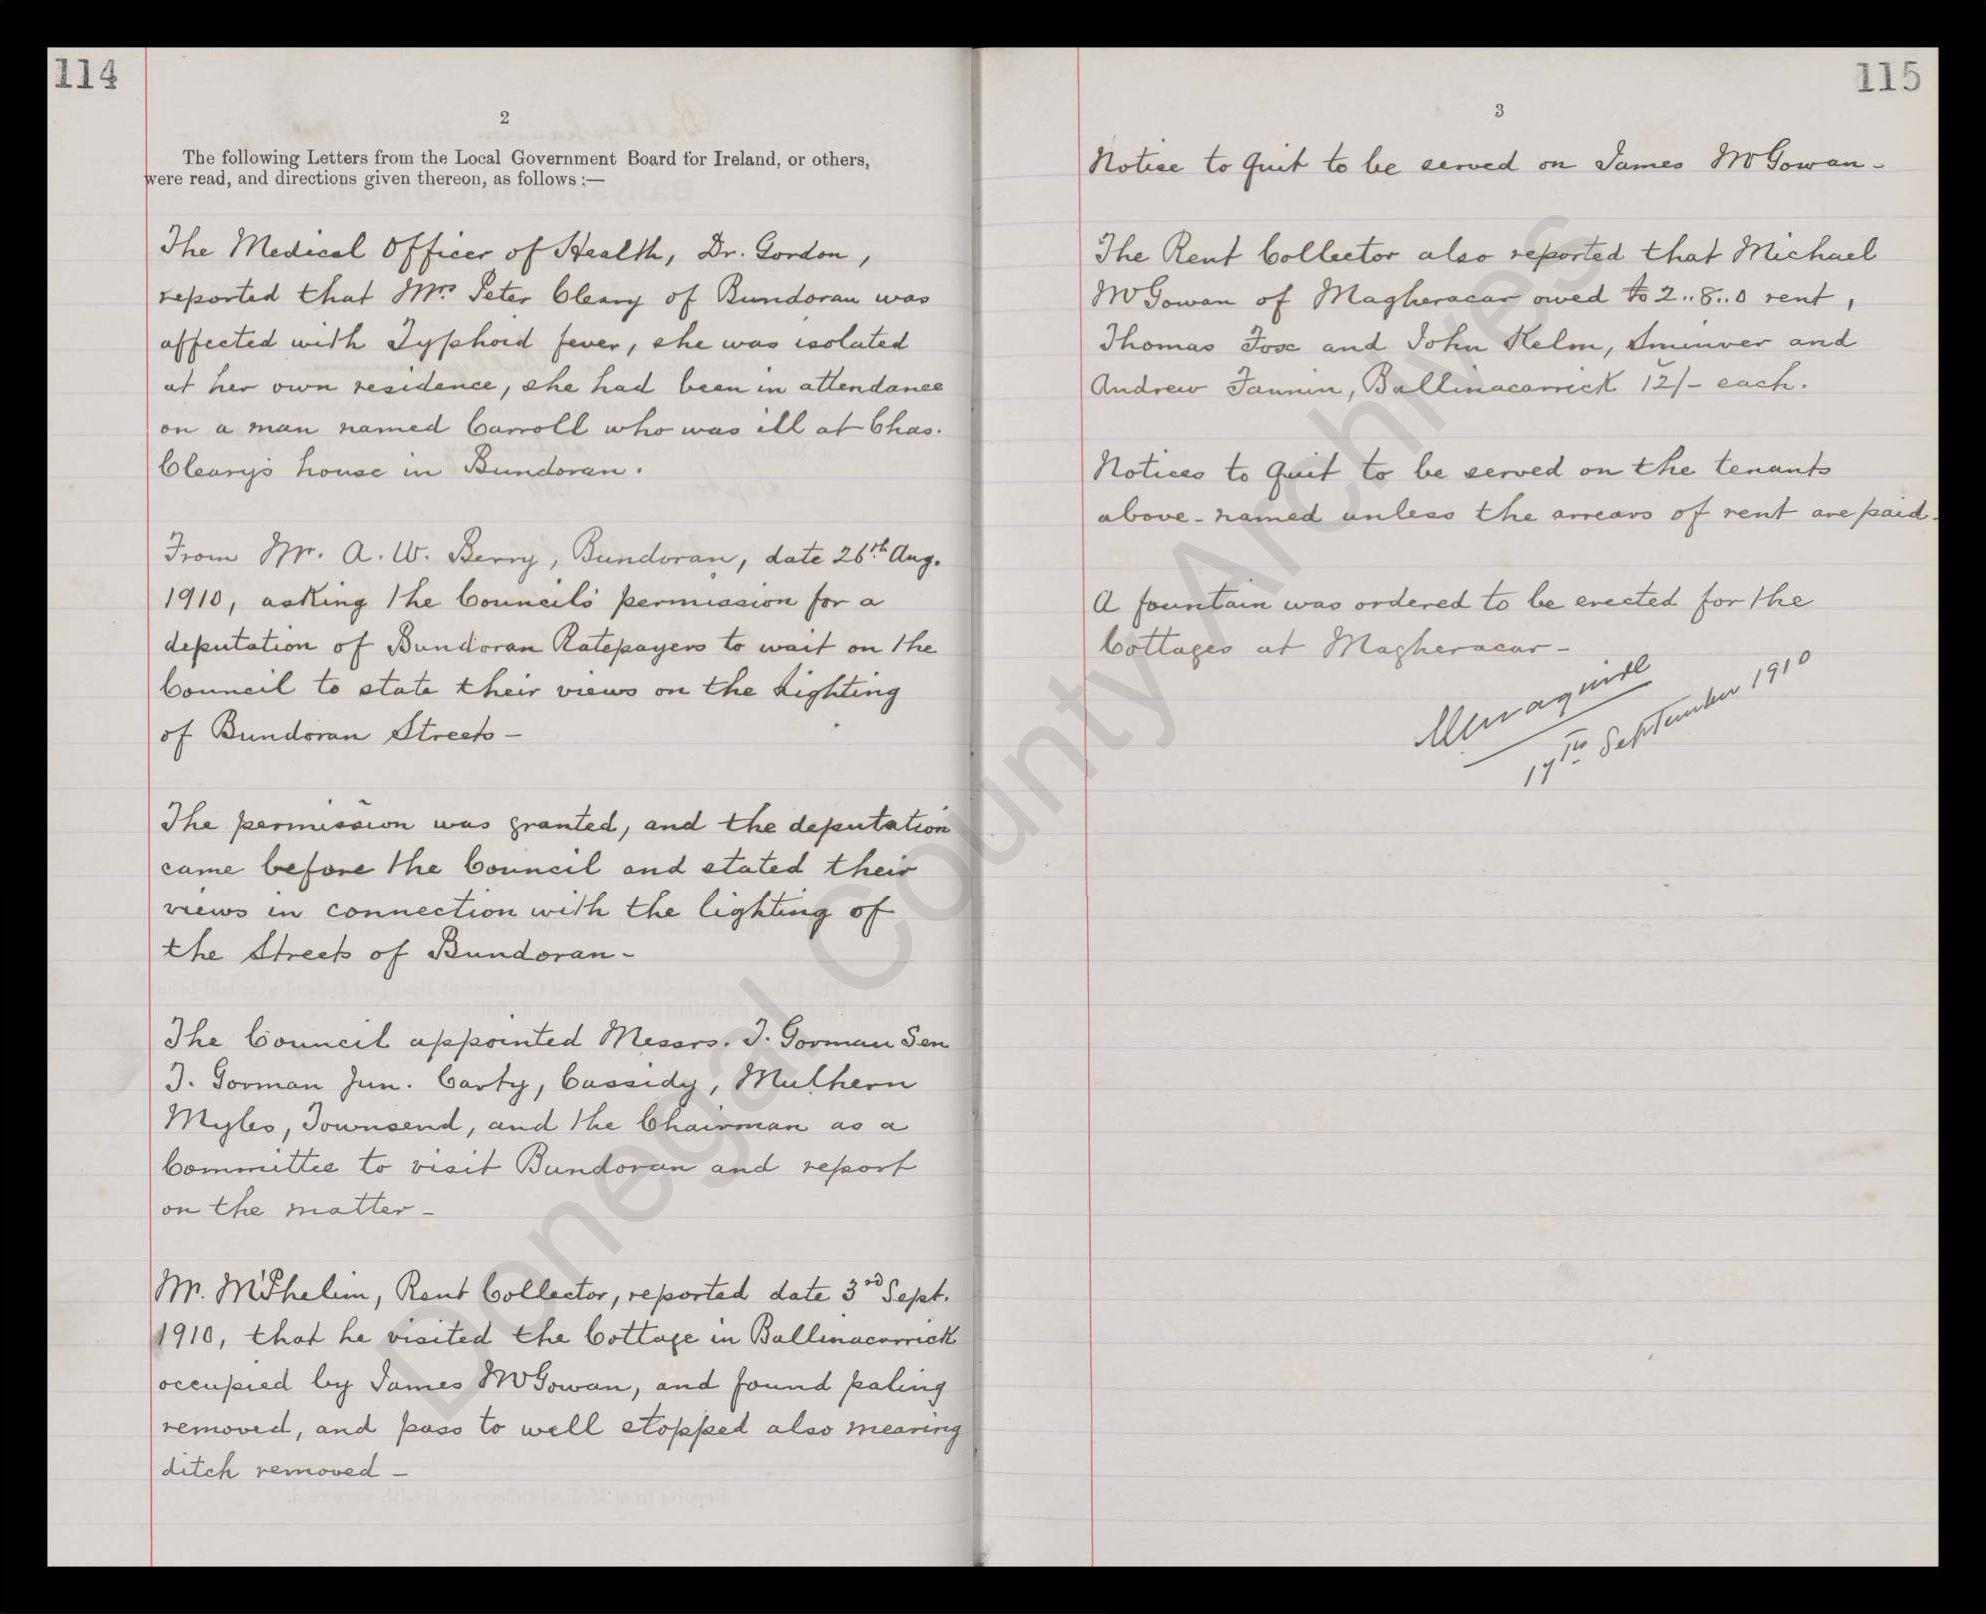 114
2
The following Letters from the Local Government Board for Ireland, or others,
were read, and directions given thereon, as follows :—
The Medical Officer of Health, Dr. Gordon,
reported that Mrs Peter Cleary of Bundoran was
affected with Typhoid fever, she was isolated
at her own residence, she had been in attendance
on a man named Carroll who was ill at Chas.
Cleary's house in Bundoran.
From Mr. A. W. Berry, Bundoran, date 26th Aug.
1910, asking the Council's permission for a
deputation of Bundoran Ratepayers to wait on the
Council to state their views on the Lighting
of Bundoran Streets -
The permission was granted, and the deputation
came before the Council and stated their
views in connection with the lighting of
the Streets of Bundoran -
The Council appointed Messrs. T. Gorman Sen
T. Gorman Jun. Carty, Cassidy, Mulhern
Myles, Townsend, and the Chairman as a
Committee to visit Bundoran and report
on the matter -
Mr. McPhelim, Rent Collector, reported date 3rd Sept.
1910, that he visited the Cottage in Ballinacarrick
occupied by James McGowan, and found paling
removed, and pass to well stopped also mearing
ditch removed -
115
3
Notice to quit to be served on James McGowan -
The Rent Collector also reported that Michael
McGowan of Magheracar owed £2..8..0 rent,
Thomas Foxe and John Kelm, and
Andrew Fannin, Ballinacarrick 12/- each.
Notices to quit to be served on the tenants
above-named unless the arrears of rent are paid -
A fountain was ordered to be erected for the
Cottages at Magheracar -
17th September 1910
Donegal County Archives